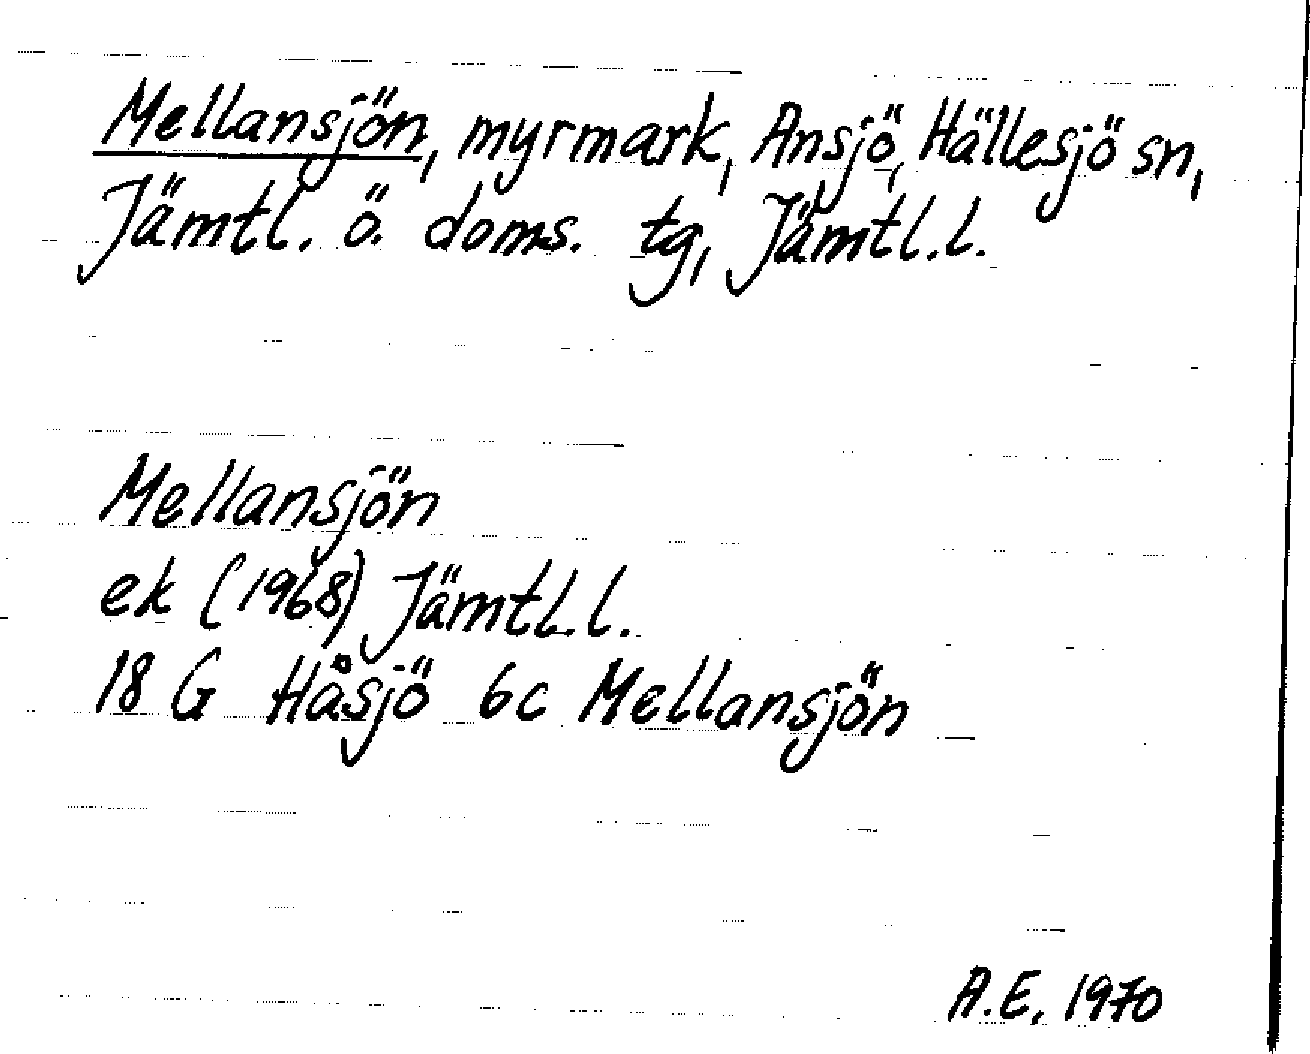 Mellansjön, myrmark, Ansjö, Hällesjö sn,
Jämtl. ö. doms. tg, Jämtl.l.
Mellansjön
ek (1968) Jämtl.l.
18 G Håsjö 6c Mellansjön
A.E. 1970